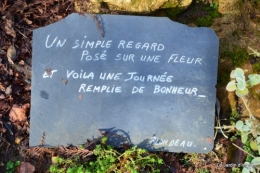 UN SIMPLE REGARD
POSÉ SUR UNE FLEUR
ET VOILA UNE JOURNÉE
REMPLIE DE BONHEUR_